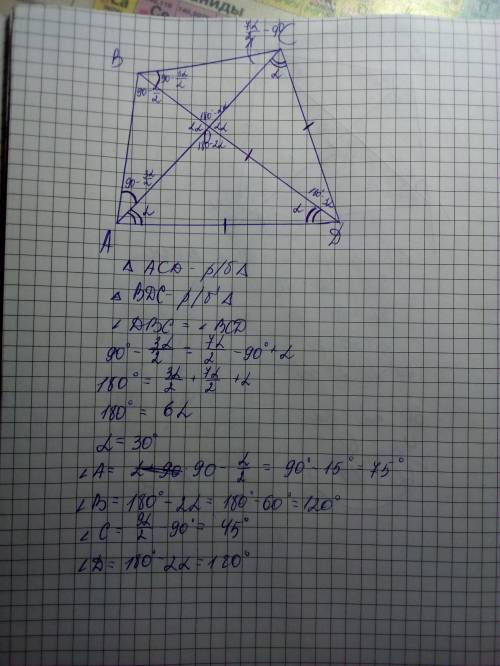 B
C
7α/2 - 90°
α
90 - 3α/2
90 - α/2
180 - 2α
2α
2α
180 - 2α
90 - 3α/2
α
α
A
D
Δ ACD - р/б Δ
Δ BDC - р/б Δ
∠ DBC = ∠ BCD
90° - 3α/2 = 7α/2 - 90° + α
180° = 3α/2 + 7α/2 + α
180° = 6α
α = 30°
∠ A = 90 - α/2 = 90° - 15° = 75°
∠ B = 180° - 2α = 180° - 60° = 120°
∠ C = 9α/2 - 90° = 45°
∠ D = 180° - 2α = 120°